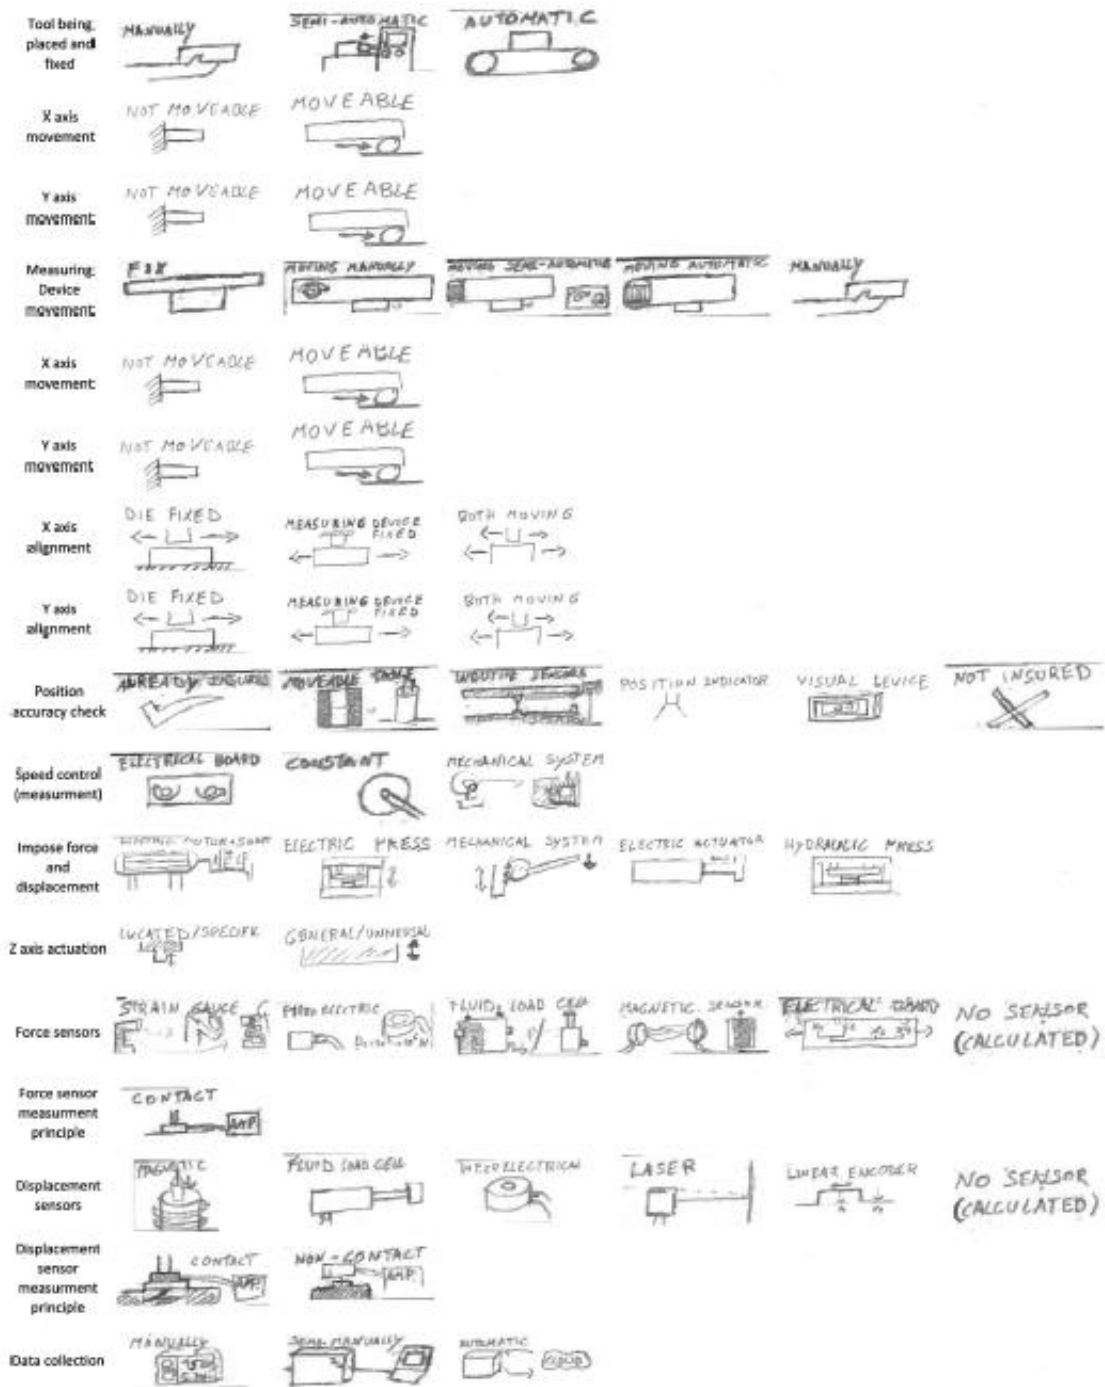 Tool being
placed and
fixed
MANUALLY
SEMI-AUTOMATIC
AUTOMATIC
X axis
movement
NOT MOVEABLE
MOVEABLE
Y axis
movement
NOT MOVEABLE
MOVEABLE
Measuring
Device
movement
FIX
MOVING MANUALLY
MOVING SEMI-AUTOMATIC
MOVING AUTOMATIC
MANUALLY
X axis
movement
NOT MOVEABLE
MOVEABLE
Y axis
movement
NOT MOVEABLE
MOVEABLE
X axis
alignment
DIE FIXED
MEASURING DEVICE
FIXED
BOTH MOVING
Y axis
alignment
DIE FIXED
MEASURING DEVICE
FIXED
BOTH MOVING
Position
accuracy check
ALREADY INSURED
MOVEABLE TABLE
SENSORS
POSITION INDICATOR
VISUAL DEVICE
NOT INSURED
Speed control
(measurment)
ELECTRICAL BOARD
CONSTANT
MECHANICAL SYSTEM
Impose force
and
displacement
ELECTRIC PRESS
MECHANICAL SYSTEM
ELECTRIC ACTUATOR
HYDRAULIC PRESS
Z axis actuation
LOCATED/SPECIFIC
GENERAL/UNIVERSAL
Force sensors
STRAIN GAUGE
FLUID LOAD CELL
MAGNETIC SENSOR
ELECTRICAL BOARD
NO SENSOR
(CALCULATED)
Force sensor
measurment
principle
CONTACT
AMP.
Displacement
sensors
MAGNETIC
FLUID LOAD CELL
LASER
LINEAR ENCODER
NO SENSOR
(CALCULATED)
Displacement
sensor
measurment
principle
CONTACT
AMP.
NON-CONTACT
AMP.
Data collection
MANUALLY
SEMI-MANUALLY
AUTOMATIC
CLOUD